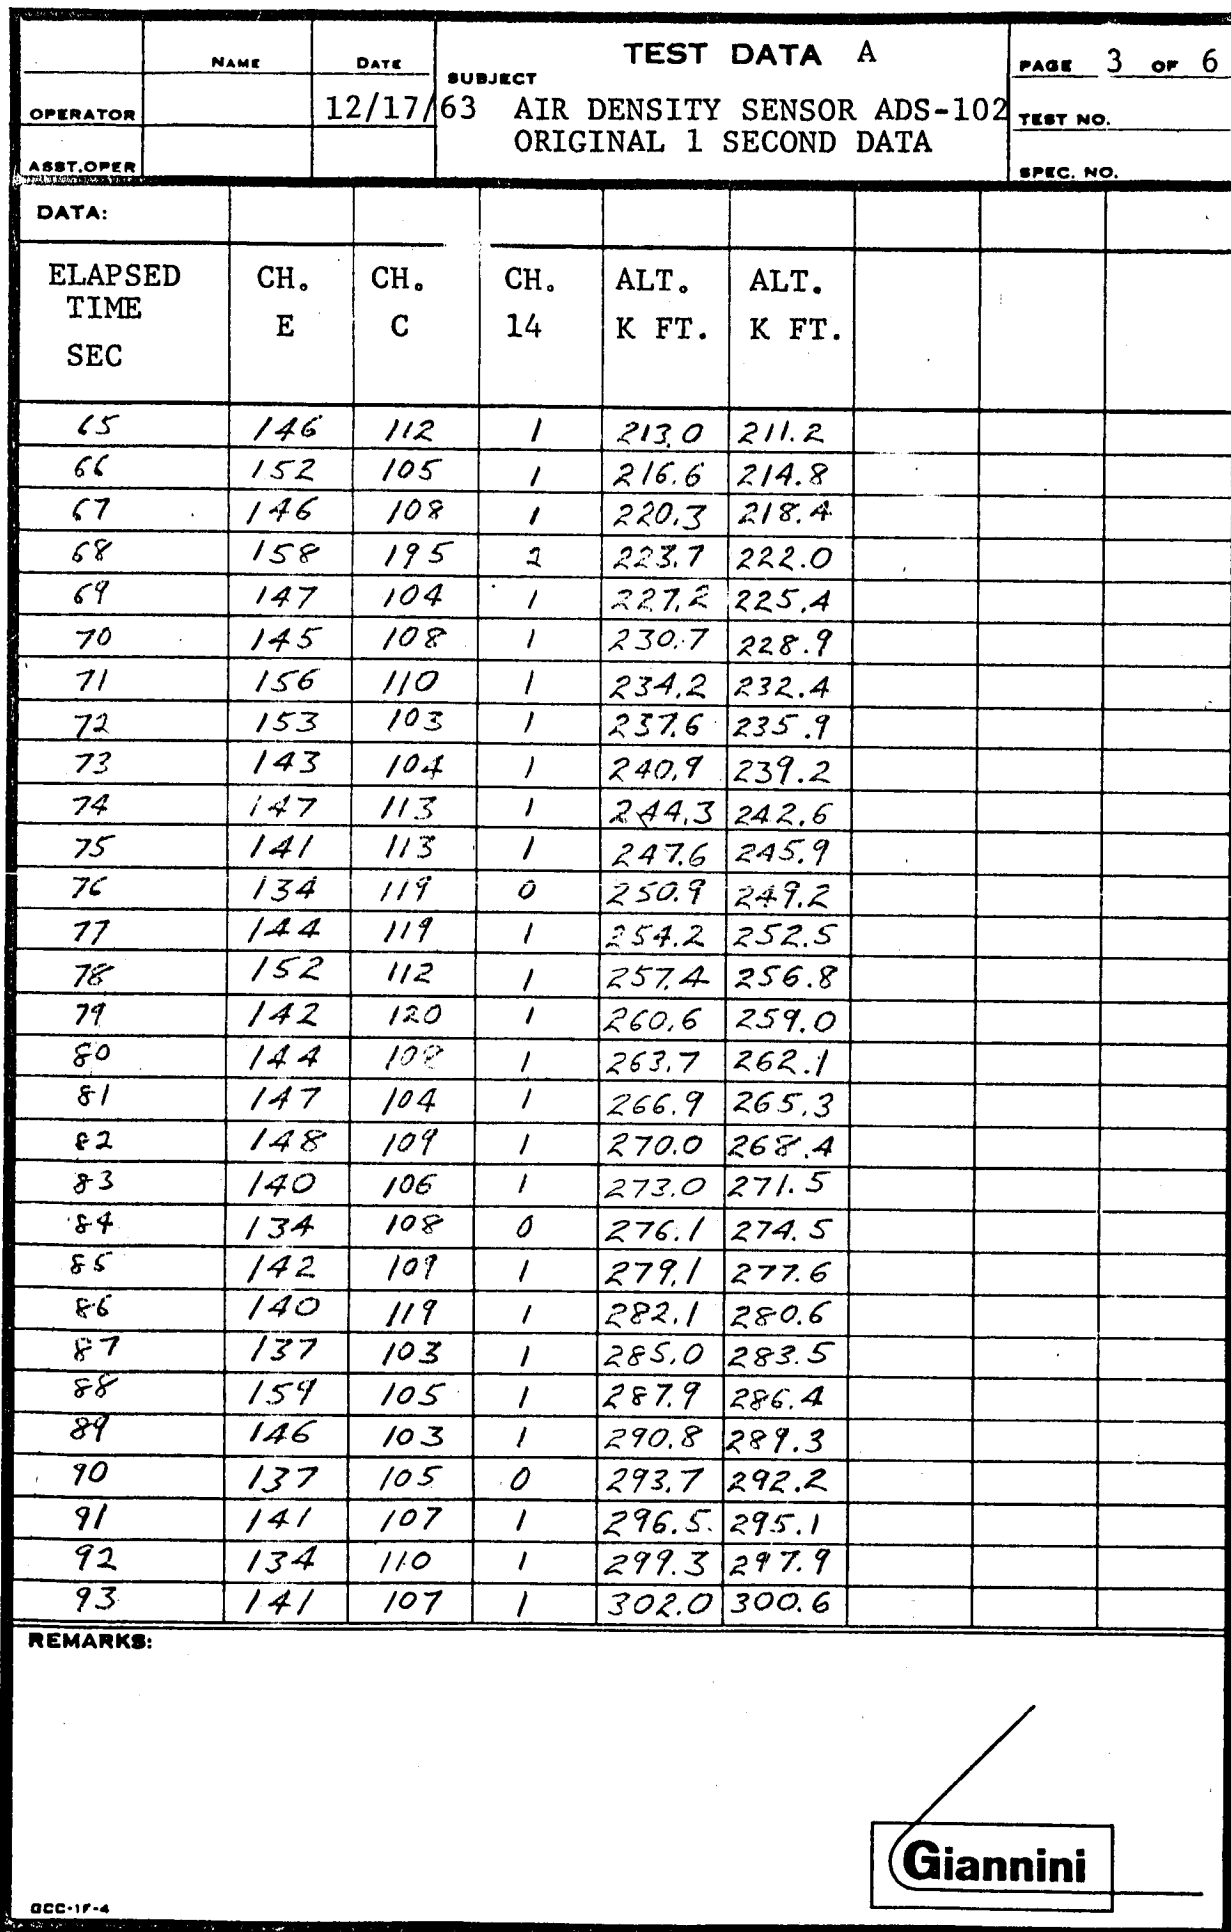 NAME DATE SUBJECT TEST DATA A PAGE 3 OF 6
OPERATOR 12/17/63 AIR DENSITY SENSOR ADS-102 TEST NO.
ORIGINAL 1 SECOND DATA
ASST.OPER SPEC. NO.
DATA:
ELAPSED CH. CH. CH. ALT. ALT.
TIME E C 14 K FT. K FT.
SEC
65 146 112 1 213.0 211.2
66 152 105 1 216.6 214.8
67 146 108 1 220.3 218.4
68 158 195 2 223.7 222.0
69 147 104 1 227.2 225.4
70 145 108 1 230.7 228.9
71 156 110 1 234.2 232.4
72 153 103 1 237.6 235.9
73 143 104 1 240.9 239.2
74 147 113 1 244.3 242.6
75 141 113 1 247.6 245.9
76 134 119 0 250.9 249.2
77 144 119 1 254.2 252.5
78 152 112 1 257.4 256.8
79 142 120 1 260.6 259.0
80 144 108 1 263.7 262.1
81 147 104 1 266.9 265.3
82 148 109 1 270.0 268.4
83 140 106 1 273.0 271.5
84 134 108 0 276.1 274.5
85 142 109 1 279.1 277.6
86 140 119 1 282.1 280.6
87 137 103 1 285.0 283.5
88 159 105 1 287.9 286.4
89 146 103 1 290.8 289.3
90 137 105 0 293.7 292.2
91 141 107 1 296.5 295.1
92 134 110 1 299.3 297.9
93 141 107 1 302.0 300.6
REMARKS:
Giannini
GCC-1F-4